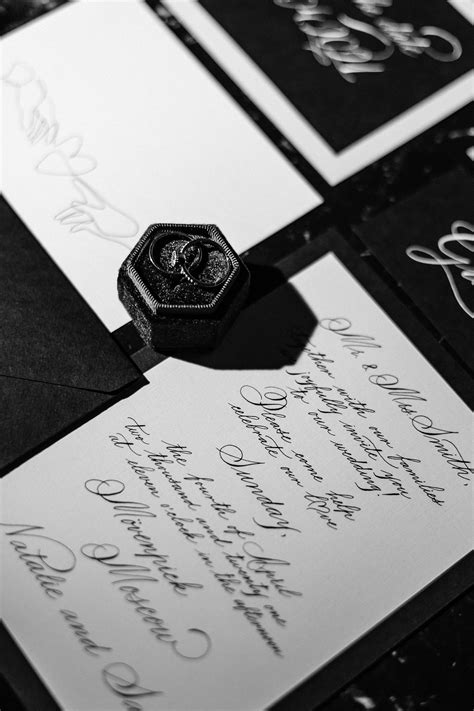 Mr. & Mrs Smith,
together with our families
joyfully invite you
to our wedding!
Please come help
celebrate our love
Sunday,
the fourth of April
two thousand and twenty one
at eleven o'clock in the afternoon
Mövenpick
Moscow
Natalie and